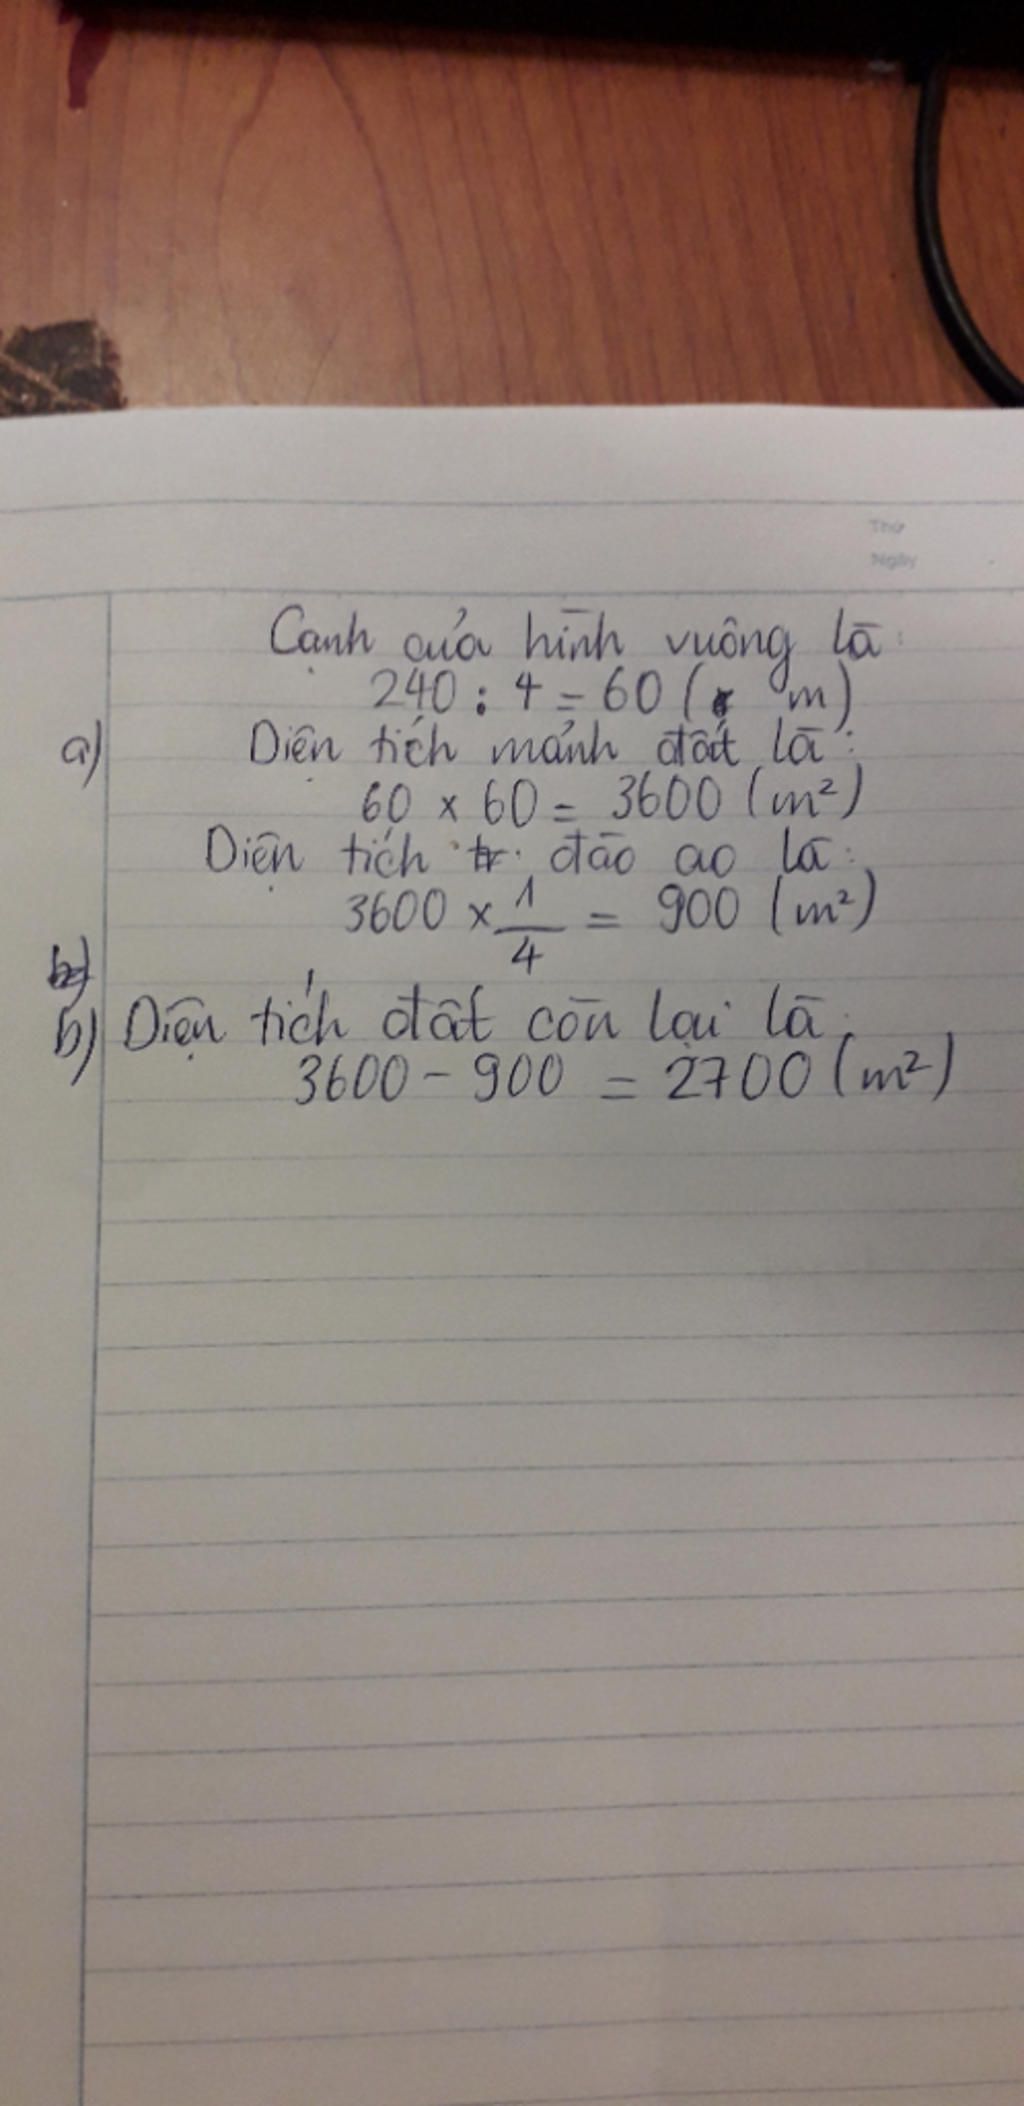 Thứ
Ngày
Cạnh của hình vuông là:
240 : 4 = 60 ( m)
a) Diện tích mảnh đất là:
60 x 60 = 3600 (m²)
Diện tích đào ao là:
3600 x 1/4 = 900 (m²)
b) Diện tích đất còn lại là:
3600 - 900 = 2700 (m²)